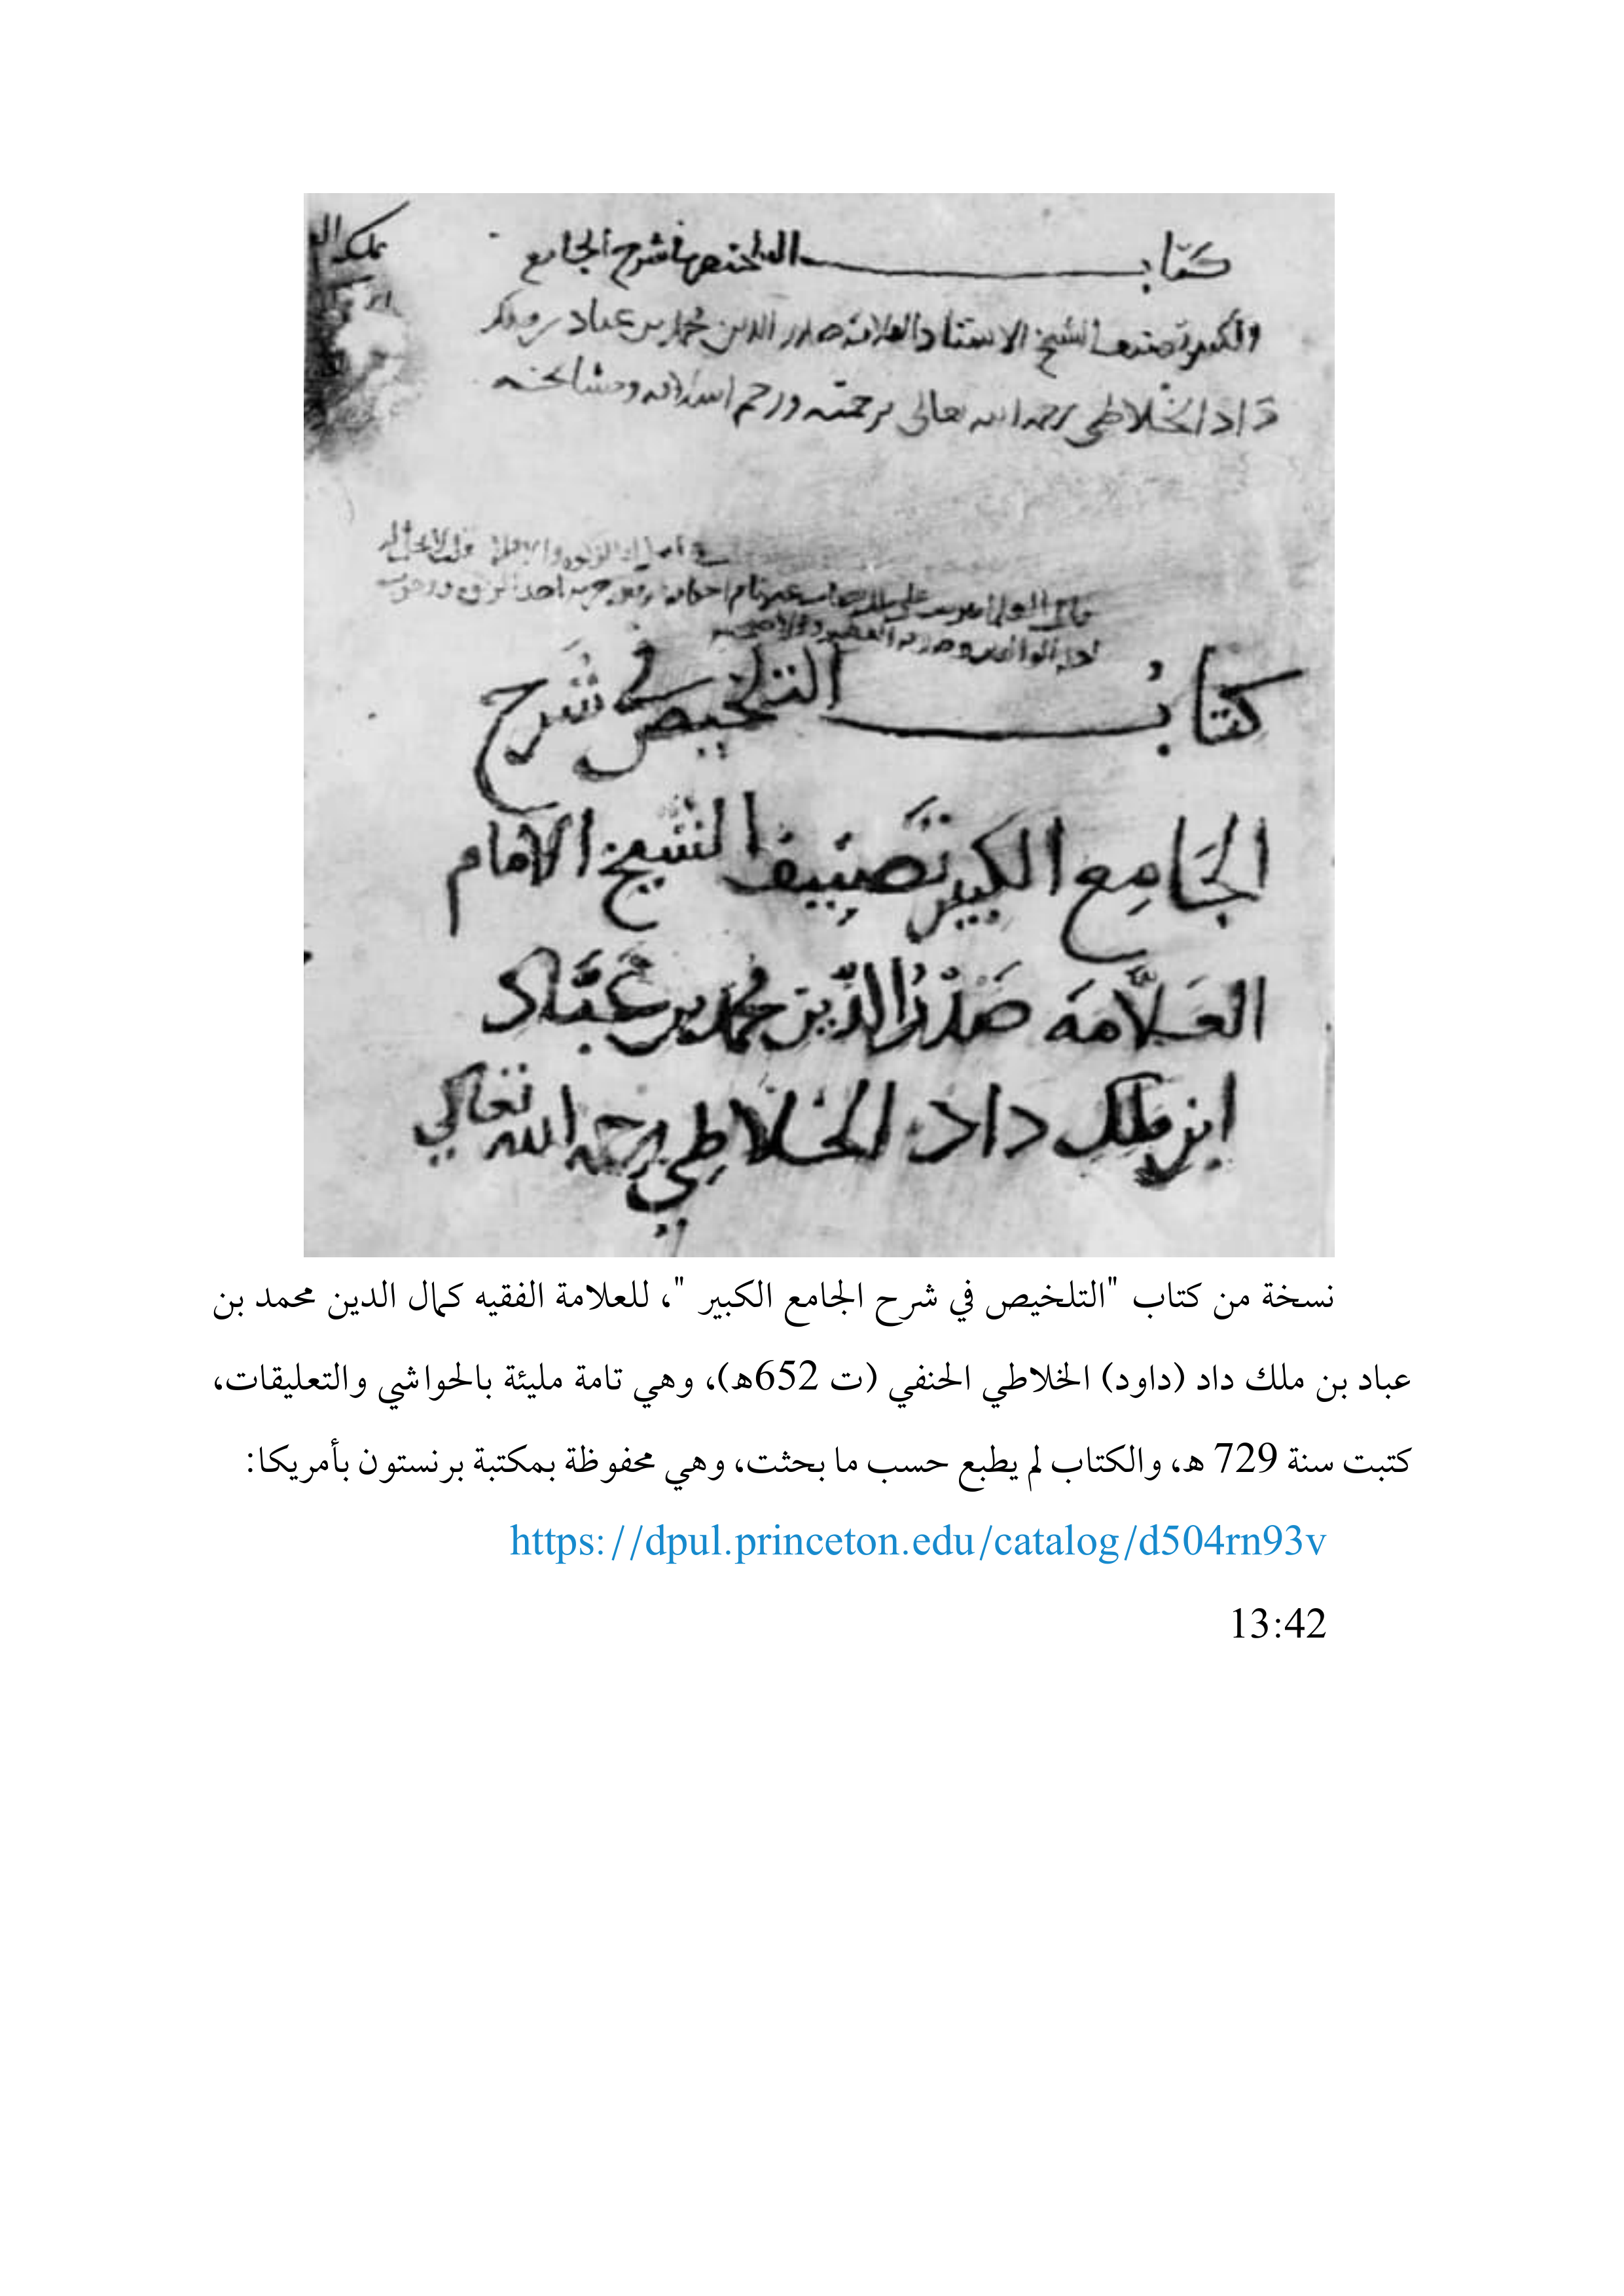 كتاب التلخيص في شرح الجامع
الكبير تصنيف الشيخ الاستاذ العلامة صدر الدين محمد بن عباد بن ملك
داد الخلاطي رحمه الله تعالى برحمته ورحم اسلافه ومشايخه
كتاب التلخيص في شرح
الجَامِع الكبير تصَنِيف الشيخ الامام
العَلاَّمَة صَدْرُ الدِّين محمد بن عَبَّاد
ابن ملك داد الخلاطِي رحمه الله تعالى
نسخة من كتاب "التلخيص في شرح الجامع الكبير "، للعلامة الفقيه كمال الدين محمد بن
عباد بن ملك داد (داود) الخلاطي الحنفي (ت 652هـ)، وهي تامة مليئة بالحواشي والتعليقات،
كتبت سنة 729 هـ، والكتاب لم يطبع حسب ما بحثت، وهي محفوظة بمكتبة برنستون بأمريكا:
https://dpul.princeton.edu/catalog/d504rn93v
13:42